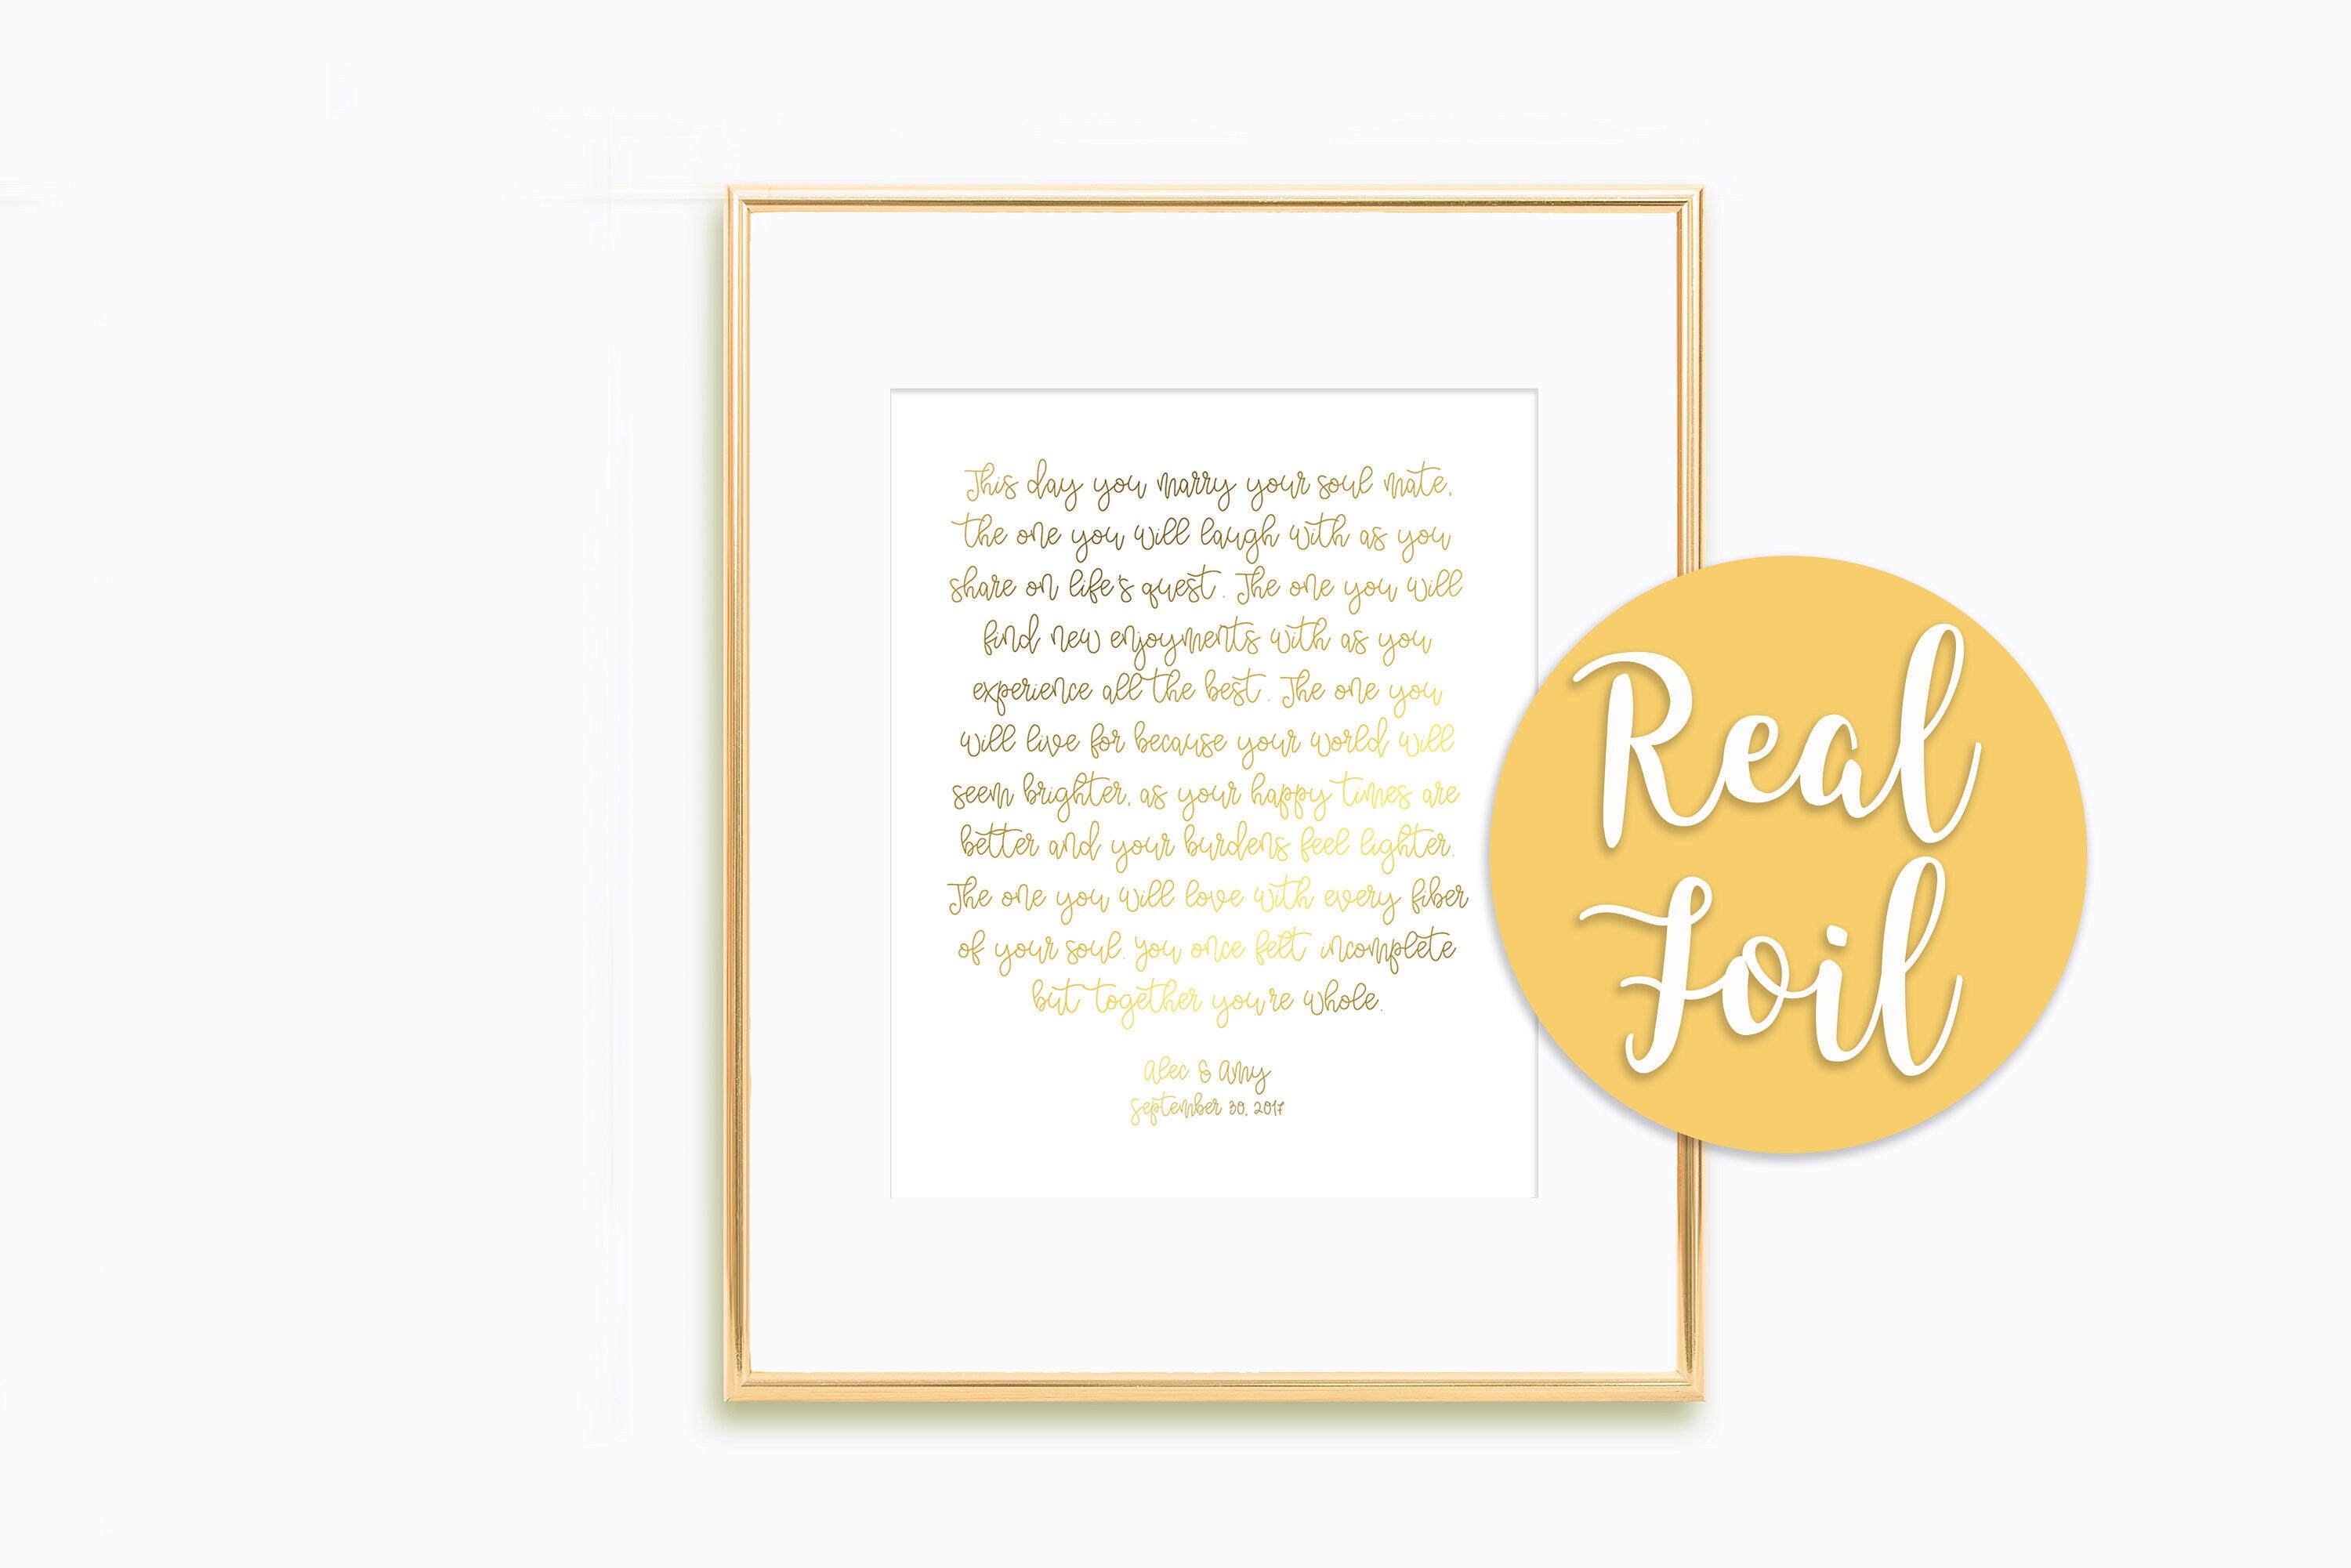 This day you marry your soul mate,
the one you will laugh with as you
share on life's quest. The one you will
find new enjoyments with as you
experience all the best. The one you
will live for because your world will
seem brighter, as your happy times are
better and your burdens feel lighter.
The one you will love with every fiber
of your soul. You once felt incomplete
but together you're whole.
Alec & Amy
September 30, 2017
Real
Foil